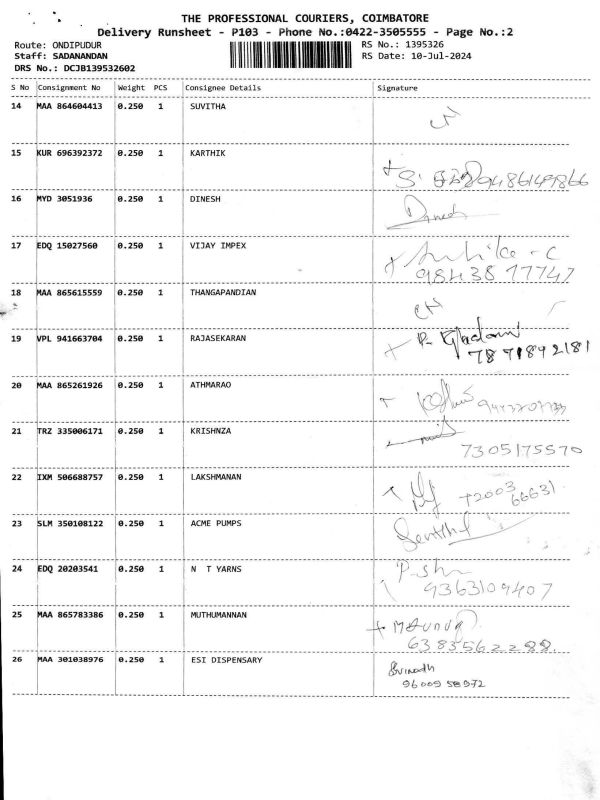 THE PROFESSIONAL COURIERS, COIMBATORE
Delivery Runsheet - P103 - Phone No.:0422-3505555 - Page No.:2
Route: ONDIPUDUR RS No.: 1395326
Staff: SADANANDAN RS Date: 10-Jul-2024
DRS No.: DCJB139532602
S No Consignment No Weight PCS Consignee Details Signature
14 MAA 864604413 0.250 1 SUVITHA
15 KUR 696392372 0.250 1 KARTHIK
16 MYD 3051936 0.250 1 DINESH Dinesh
17 EDQ 15027560 0.250 1 VIJAY IMPEX
98438 77747
18 MAA 865615559 0.250 1 THANGAPANDIAN
19 VPL 941663704 0.250 1 RAJASEKARAN
7871892181
20 MAA 865261926 0.250 1 ATHMARAO
21 TRZ 335006171 0.250 1 KRISHNZA
7305175570
22 IXM 506688757 0.250 1 LAKSHMANAN 72003
66631
23 SLM 350108122 0.250 1 ACME PUMPS Senthil
24 EDQ 20203541 0.250 1 N T YARNS
9363109407
25 MAA 865783386 0.250 1 MUTHUMANNAN
6383562288
26 MAA 301038976 0.250 1 ESI DISPENSARY
9600958972